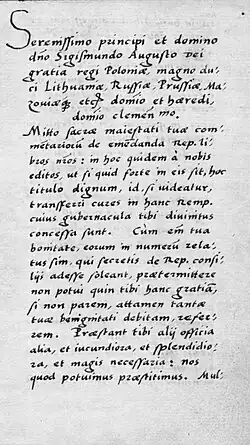 Serenissimo principi et domino
dño Sigismundo Augusto Dei
gratia regi Poloniæ, magno du-
ci Lithuaniæ, Russiæ, Prussiæ, Ma-
zouiæq; etcȝ domio et hæredi,
domio clemen mo.
Mitto sacræ maiestati tuæ com-
metariorũ de emẽdanda Rep. li-
bros nr̃os: in hoc quidem à nobis
editos, ut si quid forte in eis sit, hoc
titulo dignum, id, si uideatur,
transferri cures in hanc Remp.
cuius gubernacula tibi diuinitus
concessa sunt. Cùm em̃ tua
bonitate, eorum in numerũ rela-
tus sim, qui secretis de Rep. consi-
lijs adesse soleant, prætermittere
non potui quin tibi hanc gratiã,
si non parem, attamen tantæ
tuæ benignitati debitam, refer-
rem. Præstant tibi alij officia
alia, et iucundiora, et splendidio-
ra, et magis necessaria: nos
quod potuimus præstitimus. Mul-